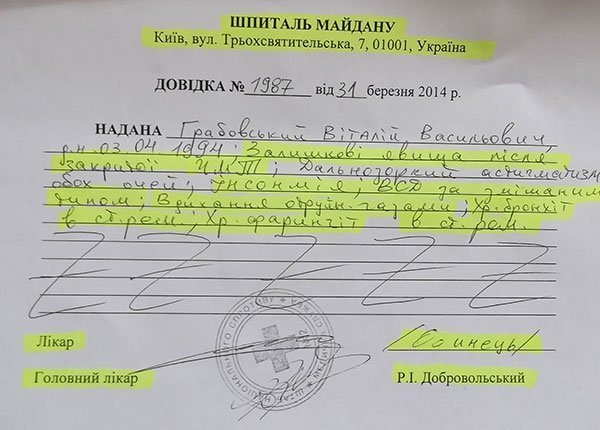 ШПИТАЛЬ МАЙДАНУ
Київ, вул. Трьохсвятительська, 7, 01001, Україна
ДОВІДКА № 1987 від 31 березня 2014 р.
НАДАНА Грабовський Віталій Васильович,
д.н. 03.04 1994; Залишкові явища після
закритої ЧМТ; Дальнозоркий астигматизм
обох очей; Інсомнія; ВСД за змішаним
типом; Вдихання отруйн. газами; Хр. бронхіт
в ст. рем.; Хр. фарингіт в ст. рем.
Лікар
Головний лікар Р.І. Добровольський